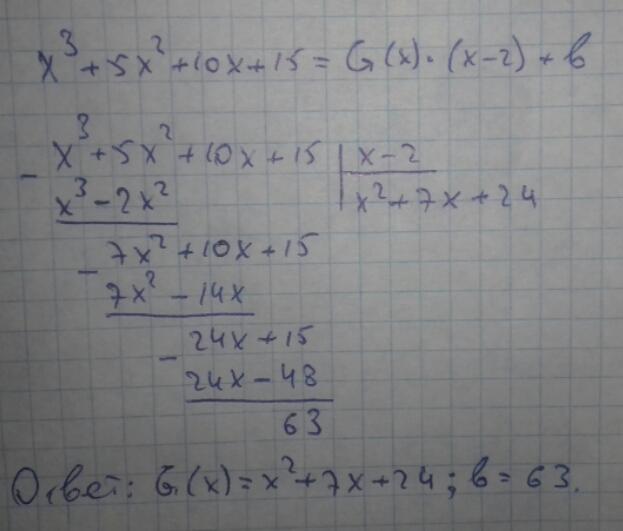 x³ + 5x² + 10x + 15 = G(x) · (x − 2) + b
− x³ + 5x² + 10x + 15 | x − 2
x³ − 2x² | x² + 7x + 24
− 7x² + 10x + 15
7x² − 14x
− 24x + 15
24x − 48
63
Ответ: G(x) = x² + 7x + 24; b = 63.